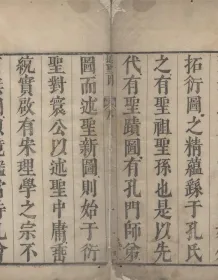 拓衍圖之精蘊繇于孔氏
之有聖祖聖孫也是以先
代有聖蹟圖有孔門師
圖而述聖新圖則始于衍
聖對寰公以述聖中庸
統實啟有宋理學之宗不